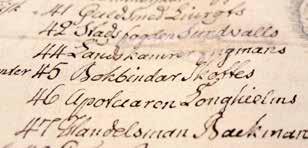 41 Guldsmed Liungts
42 Stadsfogden Sundvalls
44 Landskamrer Engmans
45 Bokbindar Skoftes
46 Apotecaren Longhielms
47 Handelsman Backman